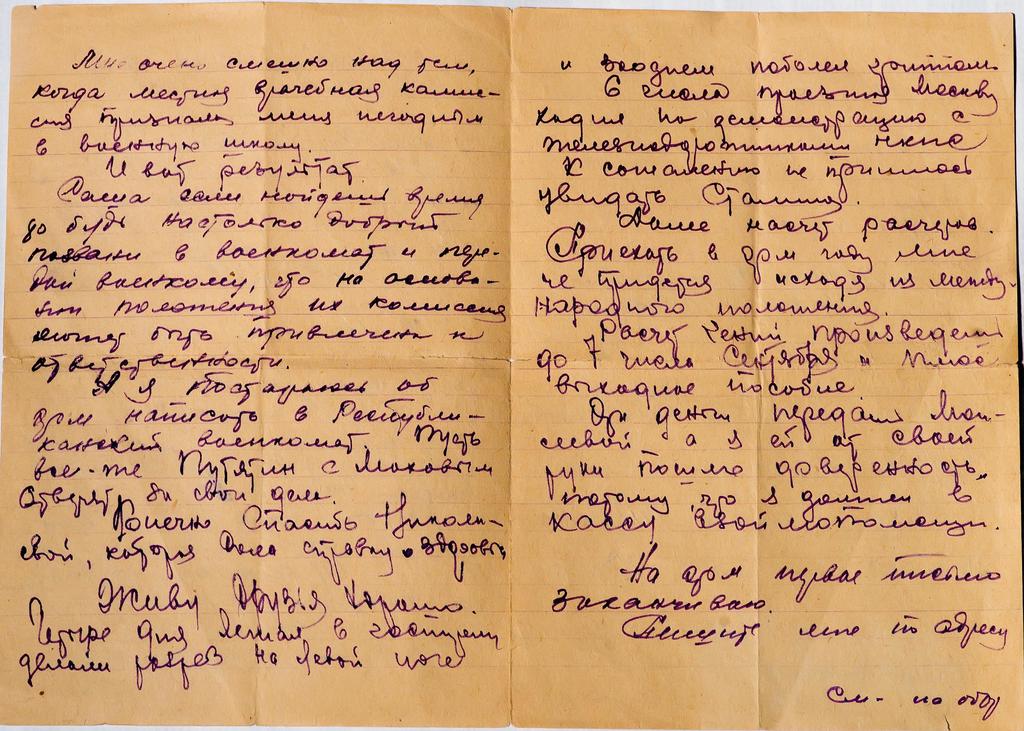 Мне очень смешно над тем,
когда местная врачебная камис-
сия признала меня негодным
в военную школу.
И вот результат.
Саша если найдеш время
то будь настолько добрый
позвани в военкомат и пере-
дай военкому, что на основа-
нии положения их комиссия
может быть привлечена к
ответственности.
А я постараюсь об
этом написать в Республи-
канский военкомат. Пусть
все-же Путятин с Маковым
ответят за свои дела.
Конечно спасибо Николае-
вой, которая дала справку о здоровьи
Живу друзья хорошо.
Четыре дня лежал в госпитале
делали разрез на левой ноге
и заоднем поболел гриппом
6 числа проезжая Москву
ходил на демонстрацию с
железнодорожниками НКПС
К сожалению не пришлось
увидать Сталина.
Далее насчет расчетов.
Приехать в этом году мне
не придется исходя из между-
народного положения.
Расчет произведен
до 7 числа Сентября и плюс
выходное пособие.
Эти деньги передай
а я ей от своей
руки пошлю доверенность,
потому что я должен в
кассу взаимопомощи.
На этом первое письмо
заканчиваю.
Пишите мне по адресу
См- на обор